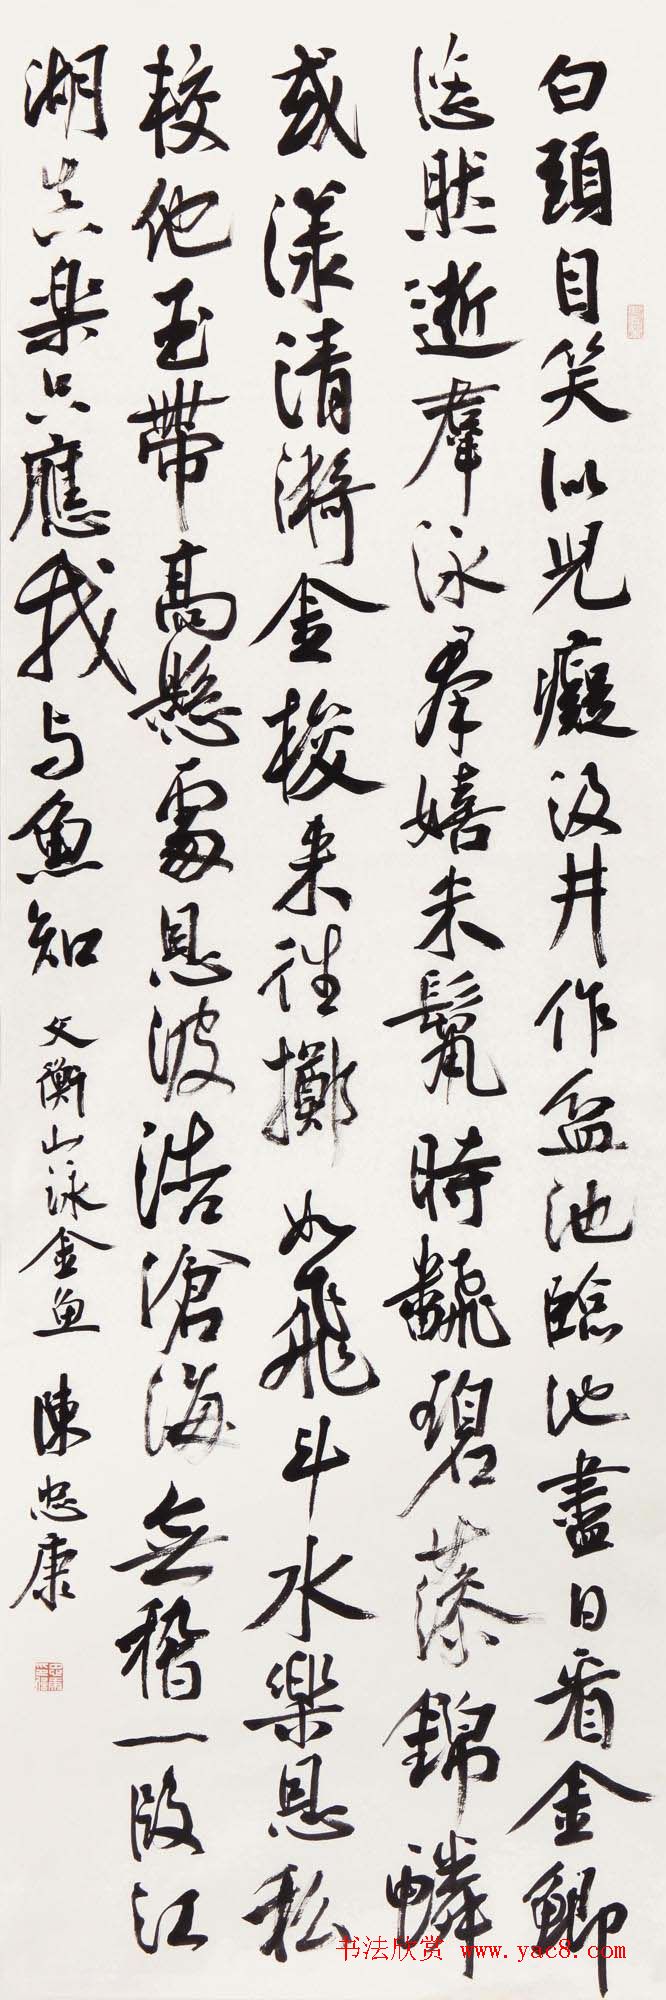 白頭自笑似兒癡汲井作盆池臨池盡日看金鯽
悠然逝群泳羣嬉朱鬣時翻碧藻錦鱗
或漾清漪金梭来往擲如飛斗水樂恩私
較他玉帶高懸處恩波浩滄海無稽一段江
湖真樂只應我与魚知
文衡山詠金魚 陳忠康
书法欣赏 www.yac8.com